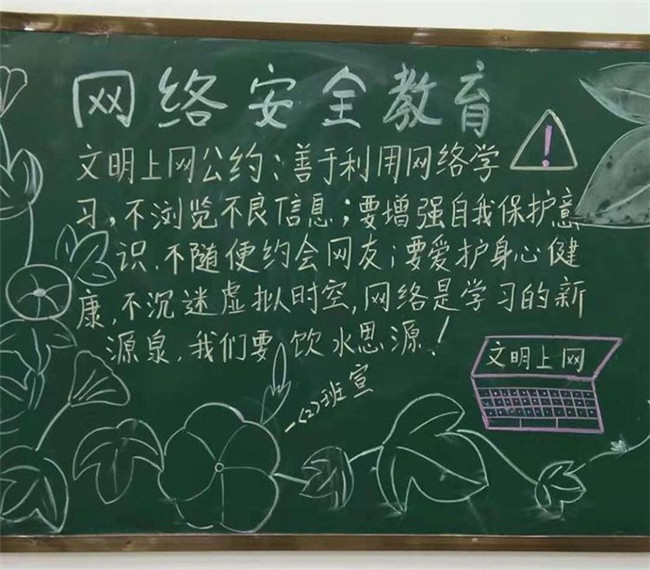 网络安全教育
文明上网公约：善于利用网络学
习，不浏览不良信息；要增强自我保护意
识，不随便约会网友；要爱护身心健
康，不沉迷虚拟时空，网络是学习的新
源泉，我们要饮水思源！
一(2)班宣
文明上网